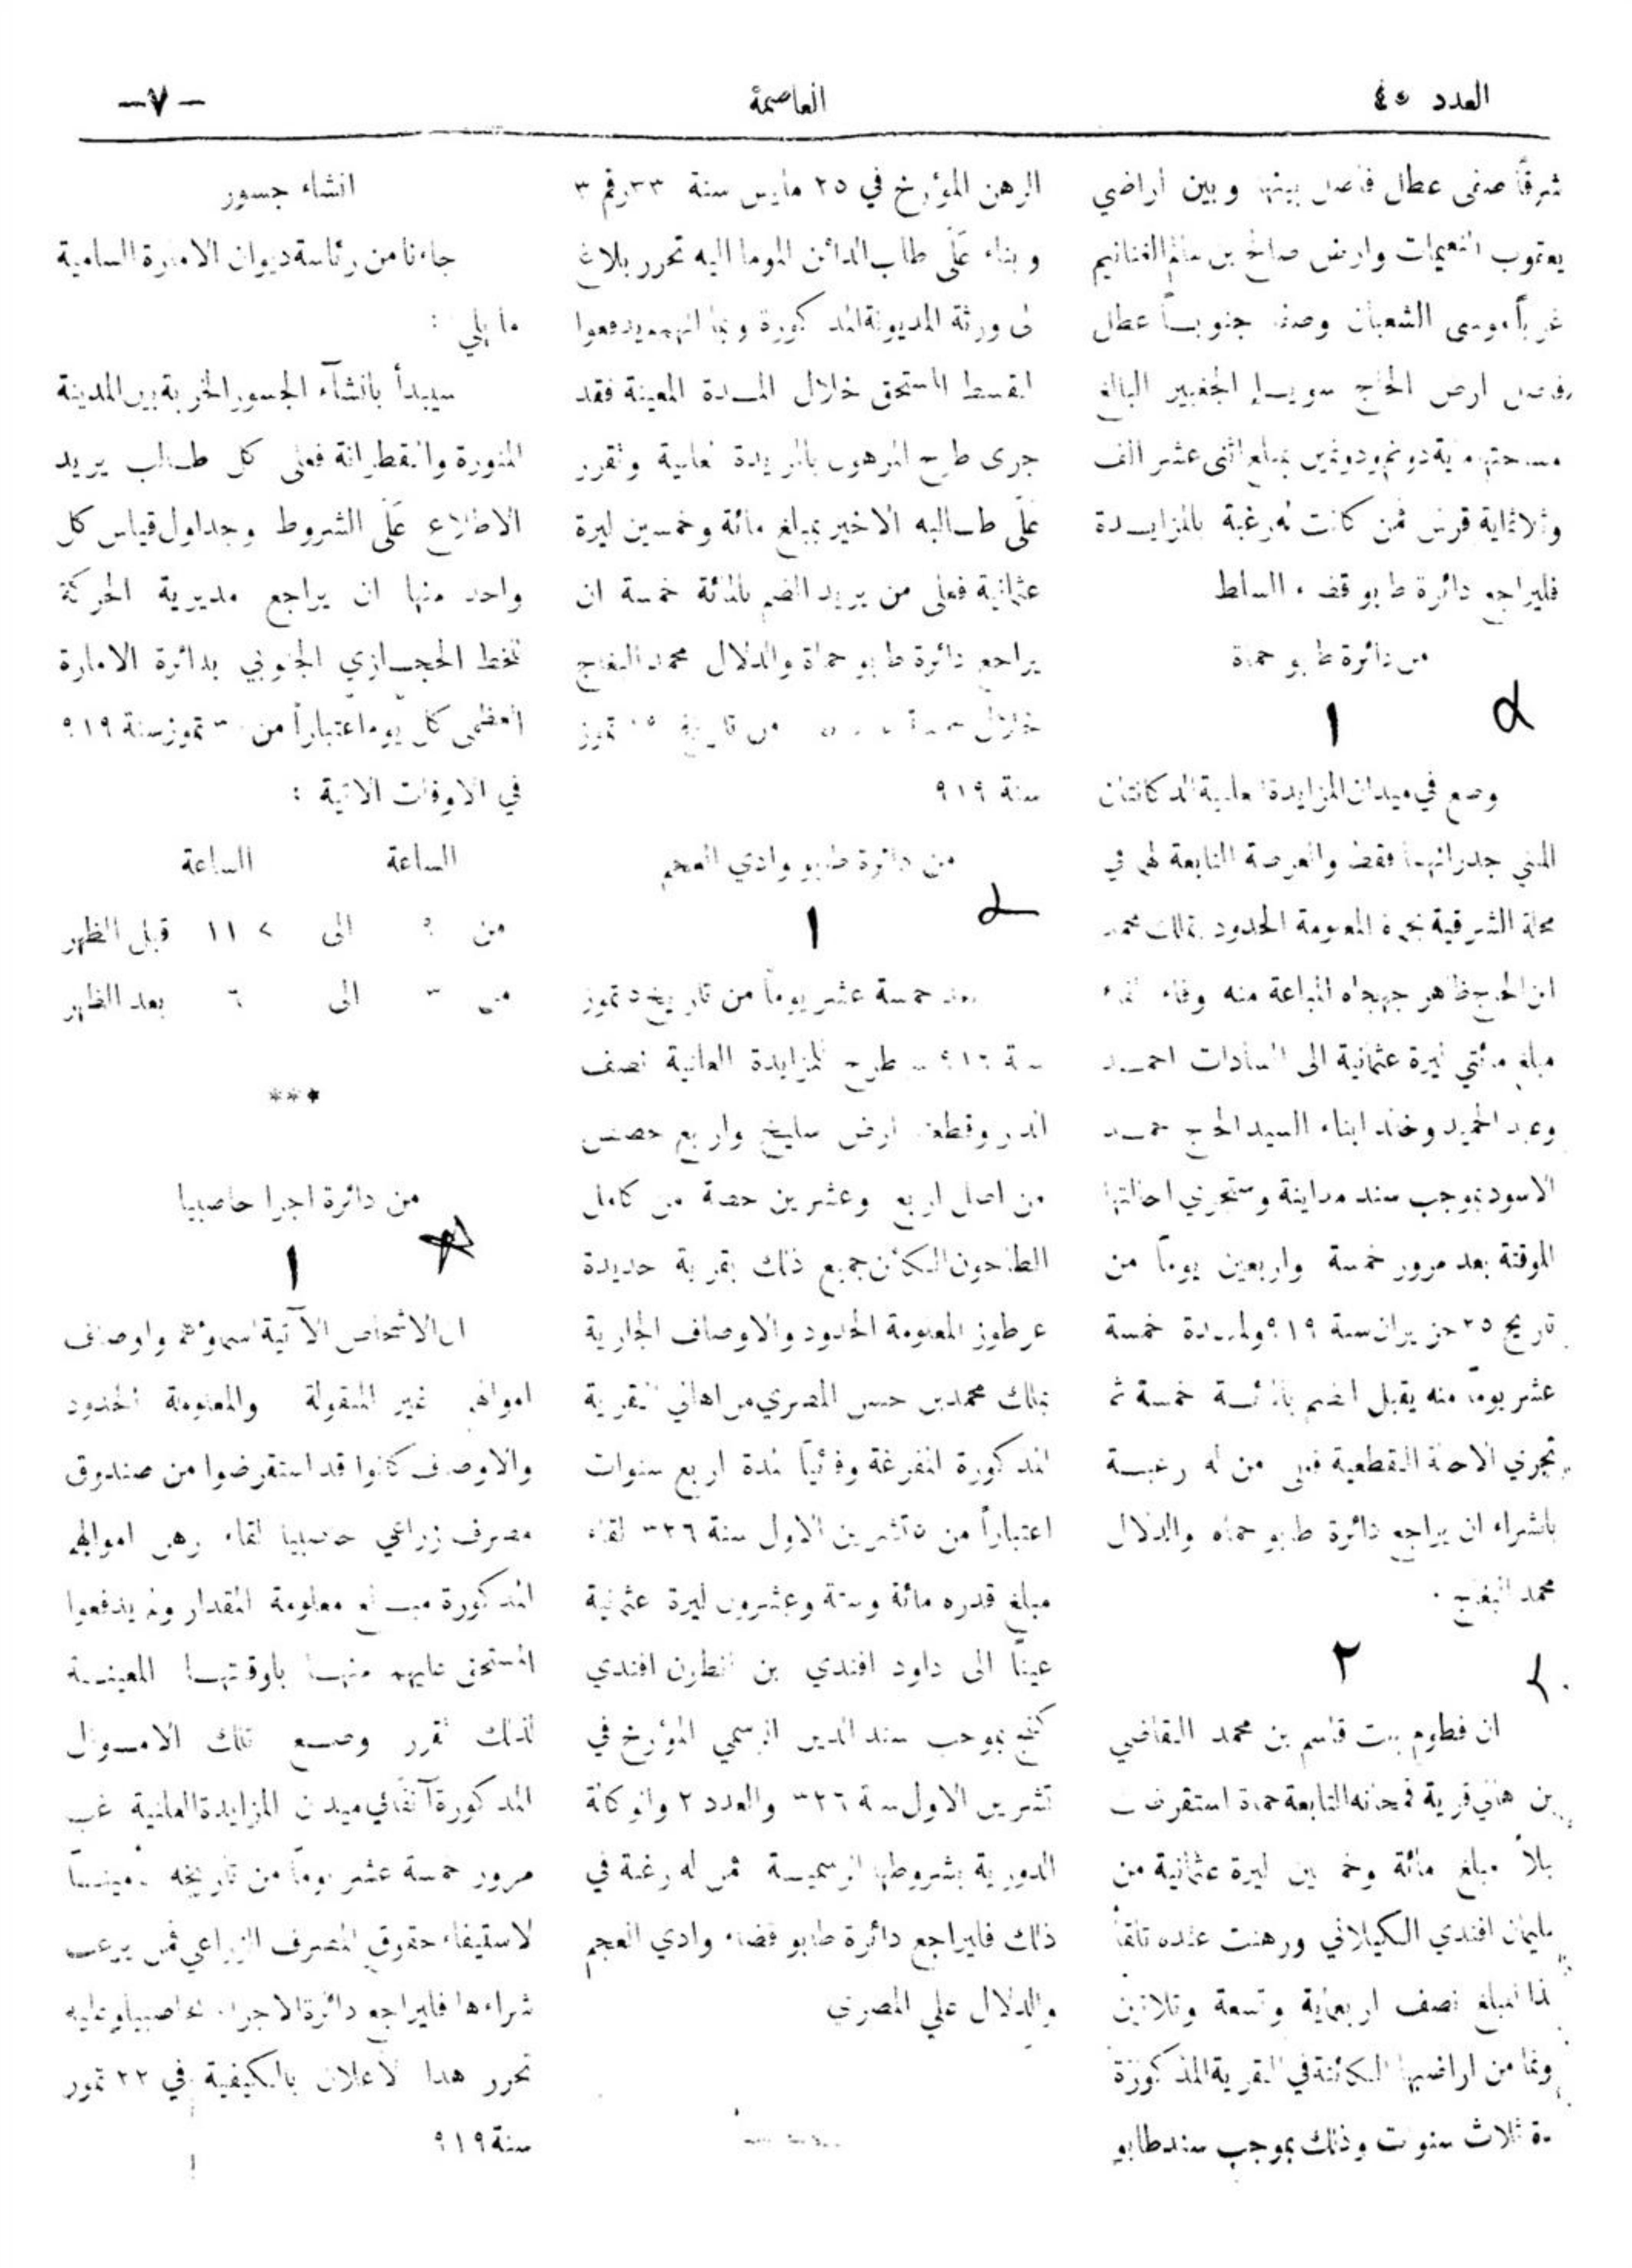 العدد ٤٥
العاصمة
—٧—
شرقاً عطل فاصل بينها وبين اراضي
يعقوب النعيمات وارض صالح بن الغنانيم
غرباً موسى الشعبان جنوباً عطل
ارض الحاج الجغبير البالغ
بمبلغ اثنى عشر الف
وثلاثماية قرش فمن كانت له رغبة بالمزايدة
فليراجع دائرة طابو قضاء السلط
من دائرة طابو حماة
١
وضع في ميدان المزايدة العلنية الدكانتان
المبني جدرانهما فقط والعرصة التابعة لهما في
محلة الشرقية المعلومة الحدود بملك محمد
ابن الحاج ظاهر المباعة منه وفاء لقاء
مبلغ مائتي ليرة عثمانية الى السادات احمد
وعبد الحميد وخالد ابناء السيد الحاج
الاسود بموجب سند مداينة وستجري احالتها
الموقتة بعد مرور خمسة واربعين يوماً من
تاريخ ٢٥ حزيران سنة ٩١٩ ولمدة خمسة
عشر يوماً منه يقبل الضم بالمائة خمسة ثم
تجري الاحالة القطعية فعلى من له رغبة
بالشراء ان يراجع دائرة طابو حماه والدلال
محمد
٢
ان فطوم بنت قاسم بن محمد القاضي
من اهالي قرية قمحانه التابعة حماة استقرضت
مبلغ مائة وخمسين ليرة عثمانية من
سليمان افندي الكيلاني ورهنت عنده
المبلغ نصف اربعماية وتسعة وثلاثين
من اراضيها الكائنة في القرية المذكورة
ثلاث سنوات وذلك بموجب سند طابو
الرهن المؤرخ في ٢٥ مارس سنة ٣٣ رقم ٣
وبناء على طلب الدائن الموما اليه تحرر بلاغ
الى ورثة المديونة المذكورة وبما انهم لم يدفعوا
القسط المستحق خلال المدة المعينة فقد
جرى طرح المرهون بالمزايدة العلنية وتقرر
على طالبه الاخير بمبلغ مائة وخمسين ليرة
عثمانية فعلى من يريد الضم بالمائة خمسة ان
يراجع دائرة طابو حماة والدلال محمد
خلال من تاريخ تموز
سنة ٩١٩
من دائرة طابو وادي العجم
١
بعد خمسة عشر يوماً من تاريخ تموز
سنة طرح للمزايدة العلنية نصف
الدار وقطعة ارض سليخ واربع حصص
من اصل اربع وعشرين حصة من كامل
الطاحون الكائن جميع ذلك بقرية حديدة
عرطوز المعلومة الحدود والاوصاف الجارية
بملك محمد بن حسن المصري من اهالي القرية
المذكورة المفرغة وفائياً لمدة اربع سنوات
اعتباراً من تشرين الاول سنة ٣٢٦ لقاء
مبلغ قدره مائة وستة وعشرون ليرة عثمانية
عيناً الى داود افندي بن انطون افندي
بموجب سند الدين الرسمي المؤرخ في
تشرين الاول سنة ٣٢٦ والعدد ٢ والوكالة
الدورية بشروطها الرسمية فمن له رغبة في
ذلك فليراجع دائرة طابو قضاء وادي العجم
والدلال علي المصري
انشاء جسور
جاءنا من رئاسة ديوان الامارة السامية
ما يلي :
سيبدأ بانشآء الجسور الخربة بين المدينة
المنورة والقطرانة فعلى كل طالب يريد
الاطلاع على الشروط وجداول قياس كل
واحد منها ان يراجع مديرية الحركة
للخط الحجازي الجنوبي بدائرة الامارة
العظمى كل يوم اعتباراً من تموز سنة ٩١٩
في الاوقات الاتية :
الساعة الساعة
من الى ١١ قبل الظهر
من ٣ الى ٦ بعد الظهر
***
من دائرة اجرا حاصبيا
١
ان الاشخاص الآتية اسماؤهم واوصاف
اموالهم غير المنقولة والمعلومة الحدود
والاوصاف كانوا قد استقرضوا من صندوق
مصرف زراعي حاصبيا لقاء رهن اموالهم
المذكورة مبالغ معلومة المقدار ولم يدفعوا
المستحق عليهم منها باوقاتها المعينة
لذلك تقرر وضع تلك الاموال
المذكورة آنفاً في ميدان المزايدة العلنية غب
مرور خمسة عشر يوماً من تاريخه
لاستيفاء حقوق المصرف الزراعي فمن يرغب
شراءها فليراجع دائرة الاجراء بحاصبيا وعليه
تحرر هذا الاعلان بالكيفية في ٢٢ تموز
سنة ٩١٩